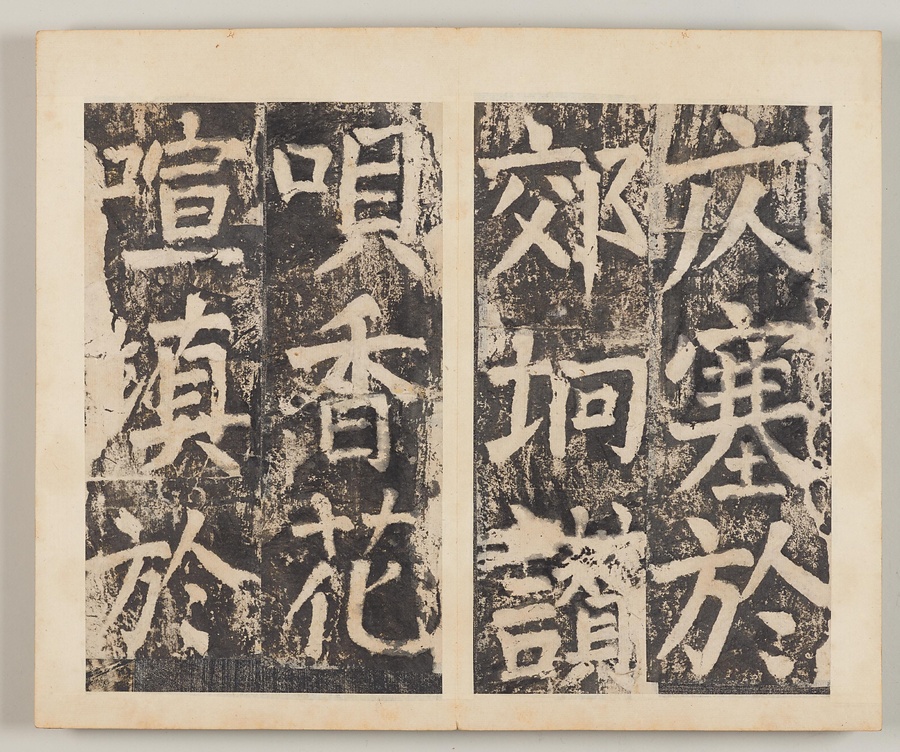 庂塞於
郊坰讚
唄香花
喧填於